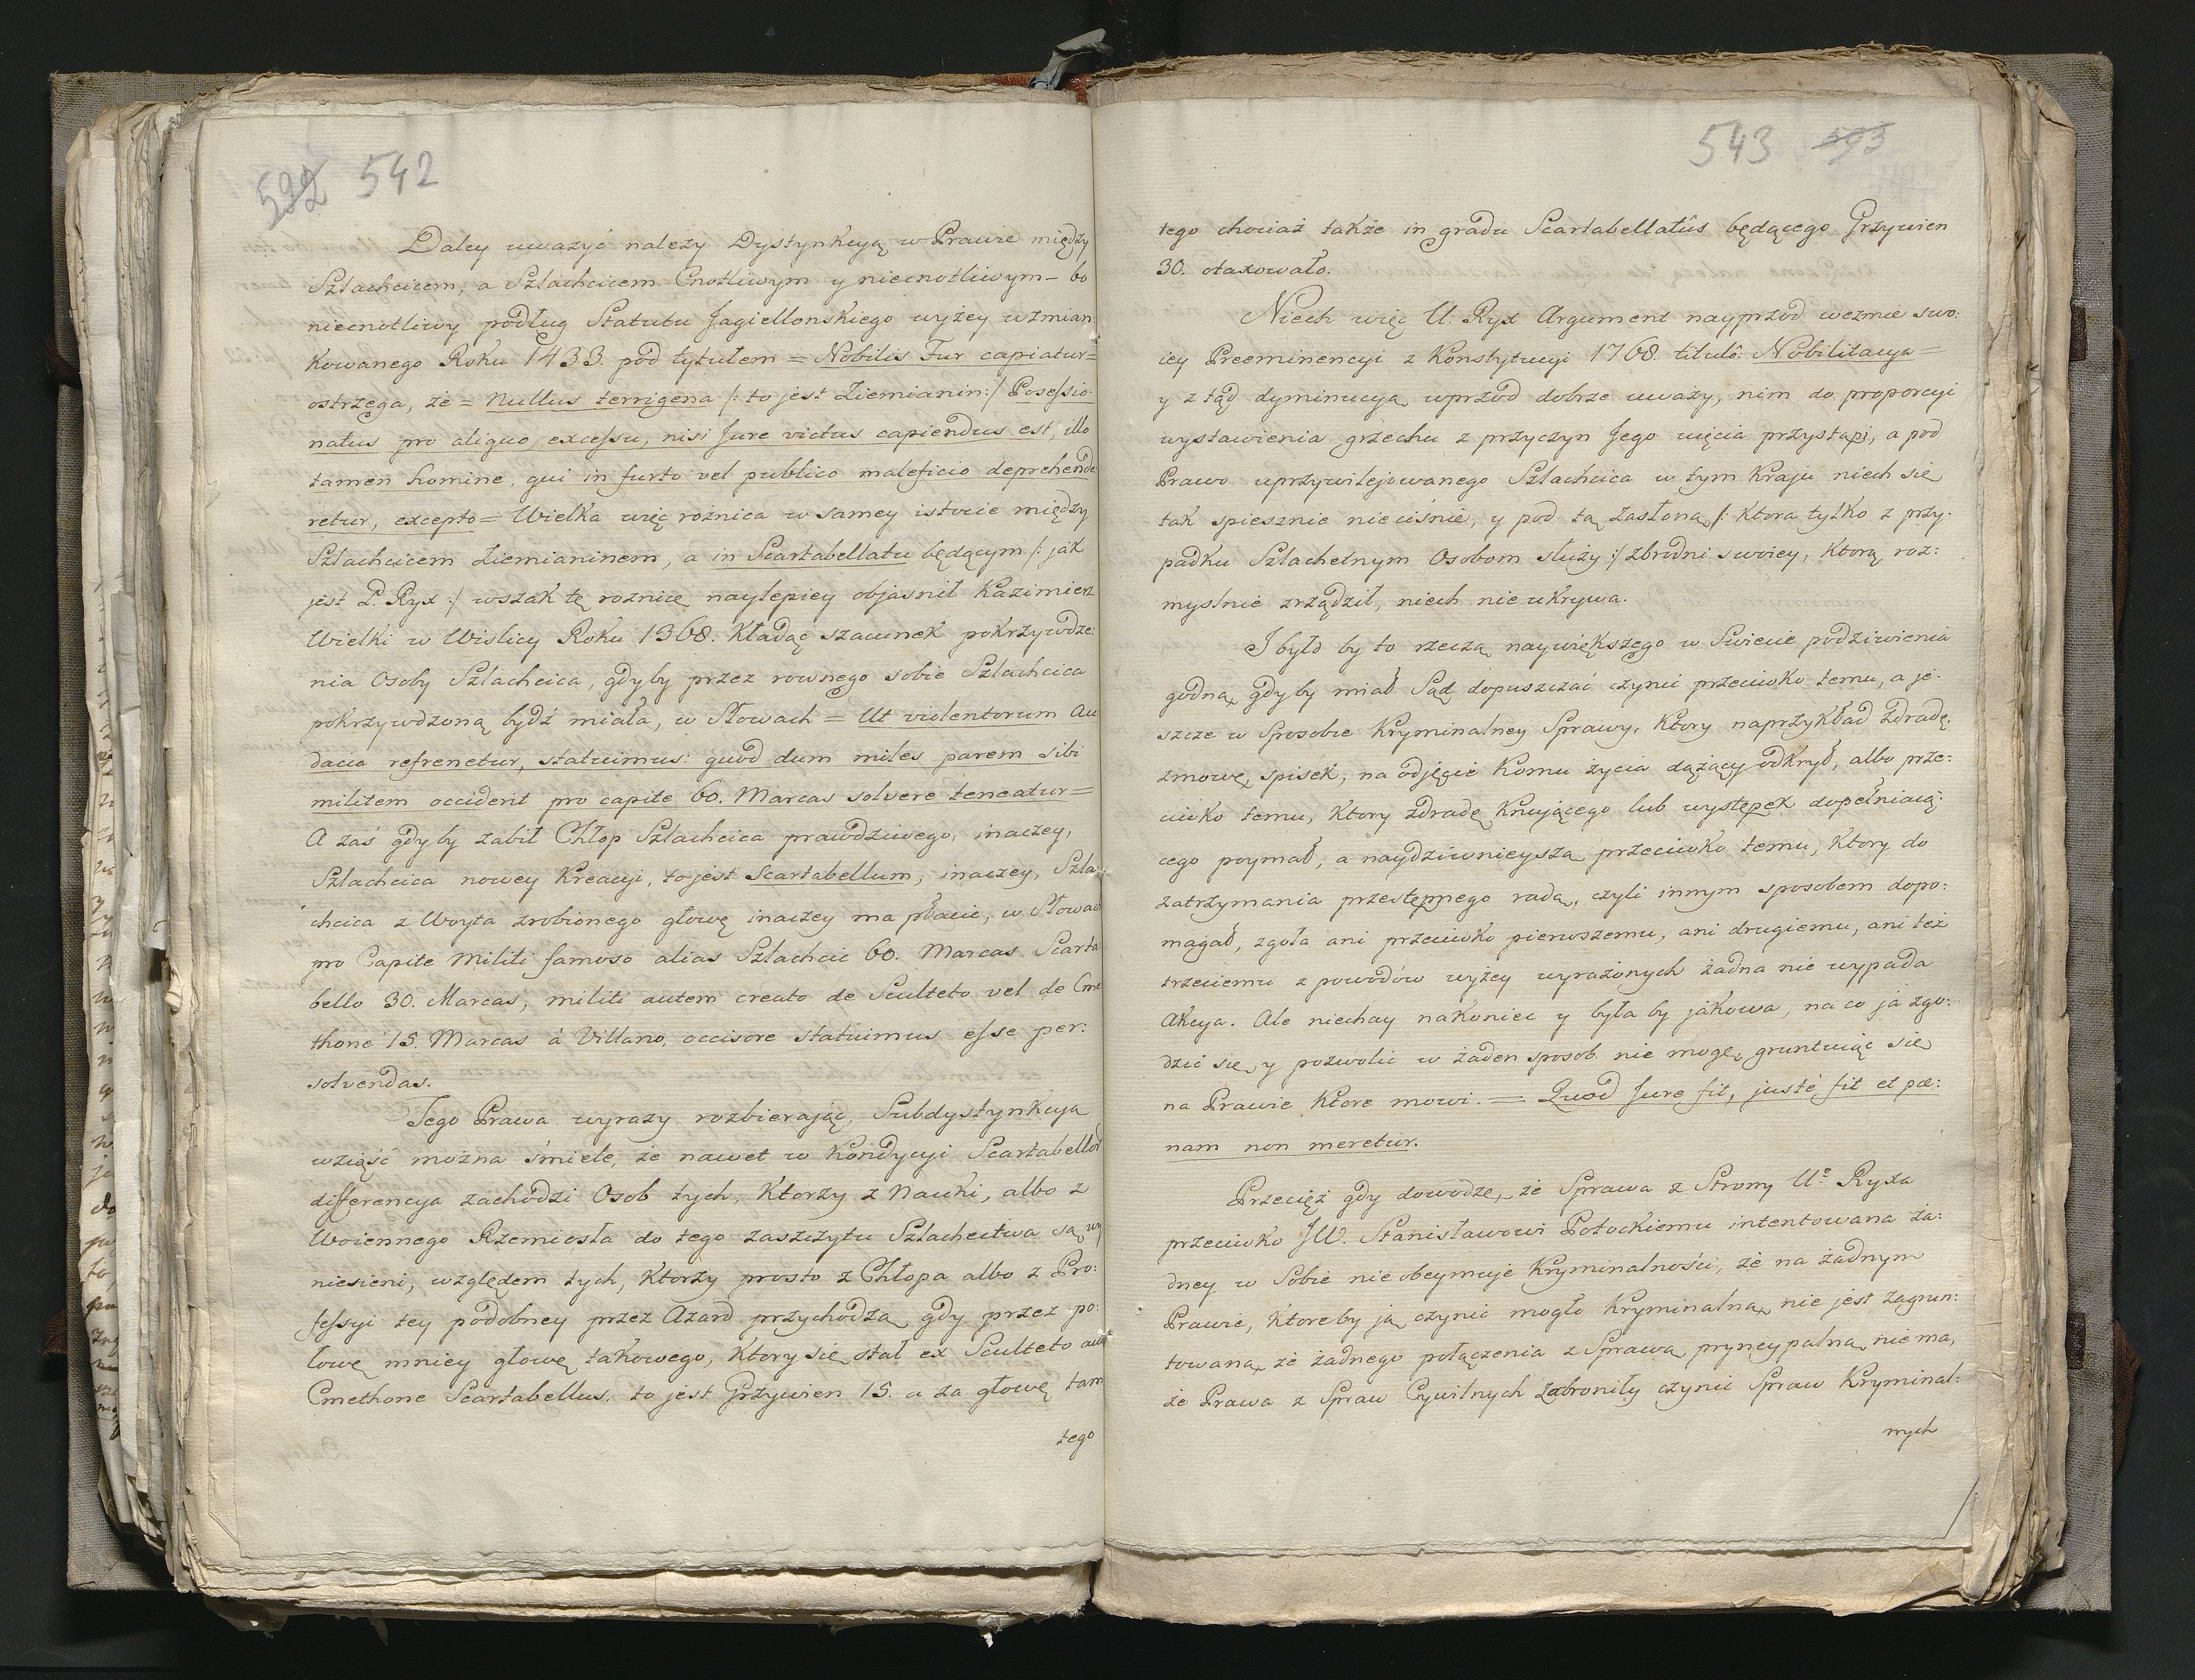 592 542
Daley uważyć należy Dystynkcyą w Prawie między
Szlachcicem, a Szlachcicem Cnotliwym y niecnotliwym – bo
niecnotliwy podług Statutu Jagiellonskiego wyżey wzmian
kowanego Roku 1433. pod tytułem = Nobilis Fur capiatur =
ostrzega, że = Nullus terrigena /: to jest Ziemianin :/ Posessio-
natus pro aliquo excessu, nisi Jure victus capiendus est, illo
tamen homine, qui in furto vel publico maleficio deprehende
retur, excepto = Wielka więc roznica w samey istocie między
Szlachcicem Ziemianinem, a in Scartabellatu będącym /: jak
jest P. Ryx :/ wszak tę roznicę naylepiey objasnił Kazimierz
Wielki w Wislicy Roku 1368. Kładąc szacunek pokrzywdze:
nia Osoby Szlachcica, gdyby przez rownego sobie Szlachcica
pokrzywdzoną bydź miała, w Słowach = Ut violentorum Au
dacia refrenetur, statuimus: quod dum miles parem sibi
militem occiderit pro capite 60. Marcas solvere teneatur =
A zaś gdyby zabił Chłop Szlachcica prawdziwego, inaczey,
Szlachcica nowey Kreacyi, to jest Scartabellum, inaczey, Szla-
chcica z Woyta zrobionego głowę inaczey ma płacić, w Słowach
pro Capite Militi famoso alias Szlachcic 60. Marcas Scarta
bello 30. Marcas, militi autem creato de Sculteto vel de Cme
thone 15. Marcas á Villano, occisore statuimus esse per:
solvendas.
Tego Prawa wyrazy rozbierając, Subdystynkcya
wziąść można śmiele, że nawet w Kondycyi Scartabellot
differencya zachodzi Osob tych, Ktorzy z Nauki, albo z
Woiennego Rzemiosła do tego zaszczytu Szlachectwa są wy
niesieni, względem tych, Ktorzy prosto z Chłopa albo z Pro:
fessyi tey podobney przez Azard przychodzą, gdy przez po:
łowę mniey głowę takowego, Ktory się stał ex Sculteto aut
Cmethone Scartabellus, to jest Grzywien 15. a za głowę tam
tego
543 593
tego chociaż także in gradu Scartabellatûs będącego Grzywien
30. otaxowało.
Niech więc U. Ryx Argument nayprzod wezmie swo:
iey Preeminencyi z Konstytucyi 1768. titulô: Nobilitacya =
y z tąd dyminucyą wprzod dobrze uważy, nim do proporcyi
wystawienia grzechu z przyczyn Jego ujęcia przystąpi, a pod
Prawo uprzywilejowanego Szlachcica w tym Kraju niech się
tak spiesznie nieciśnie, y pod tą zasłoną /: Ktora tylko z przy-
padku Szlachetnym Osobom służy :/ zbrodni swoiey, Ktorą roz:
myslnie zrządził, niech nie ukrywa.
I było by to rzeczą naywiększego w Swiecie podziwienia
godną, gdyby miał Sąd dopuszczać czynić przeciwko temu, a je-
szcze w Sposobie Kryminalney Sprawy, Ktory naprzykład zdradę,
zmowę, spisek, na odjęcie Komu życia dążący odkrył, albo prze:
ciwko temu, Ktory zdradę Knującego lub występek dopełniaią:
cego poymał, a naydziwnieysza, przeciwko temu, Ktory do
zatrzymania przestępnego radą, czyli innym sposobem dopo:
magał, zgoła ani przeciwko pierwszemu, ani drugiemu, ani też
trzeciemu z powodów wyżey wyrażonych żadna nie wypada
Akcya. Ale niechay nakoniec y była by jakowa, na co ja zgo:
dzić się y pozwolić w żaden sposob nie mogę, gruntuiąc się
na Prawie Ktore mowi. = Quod Jure fit, justé fit et pœ:
nam non meretur.
Przecięż gdy dowodzę, że Sprawa z Strony Uo Ryxa
przeciwko JW. Stanisławowi Potockiemu intentowana ża:
dney w Sobie nie obeymuje Kryminalności, że na żadnym
Prawie, Ktoreby ją czynić mogło Kryminalną, nie jest zagrun:
towana, że żadnego połączenia z Sprawą pryncypalną nie ma,
że Prawa z Spraw Cywilnych zabroniły czynić Spraw Kryminal:
nych